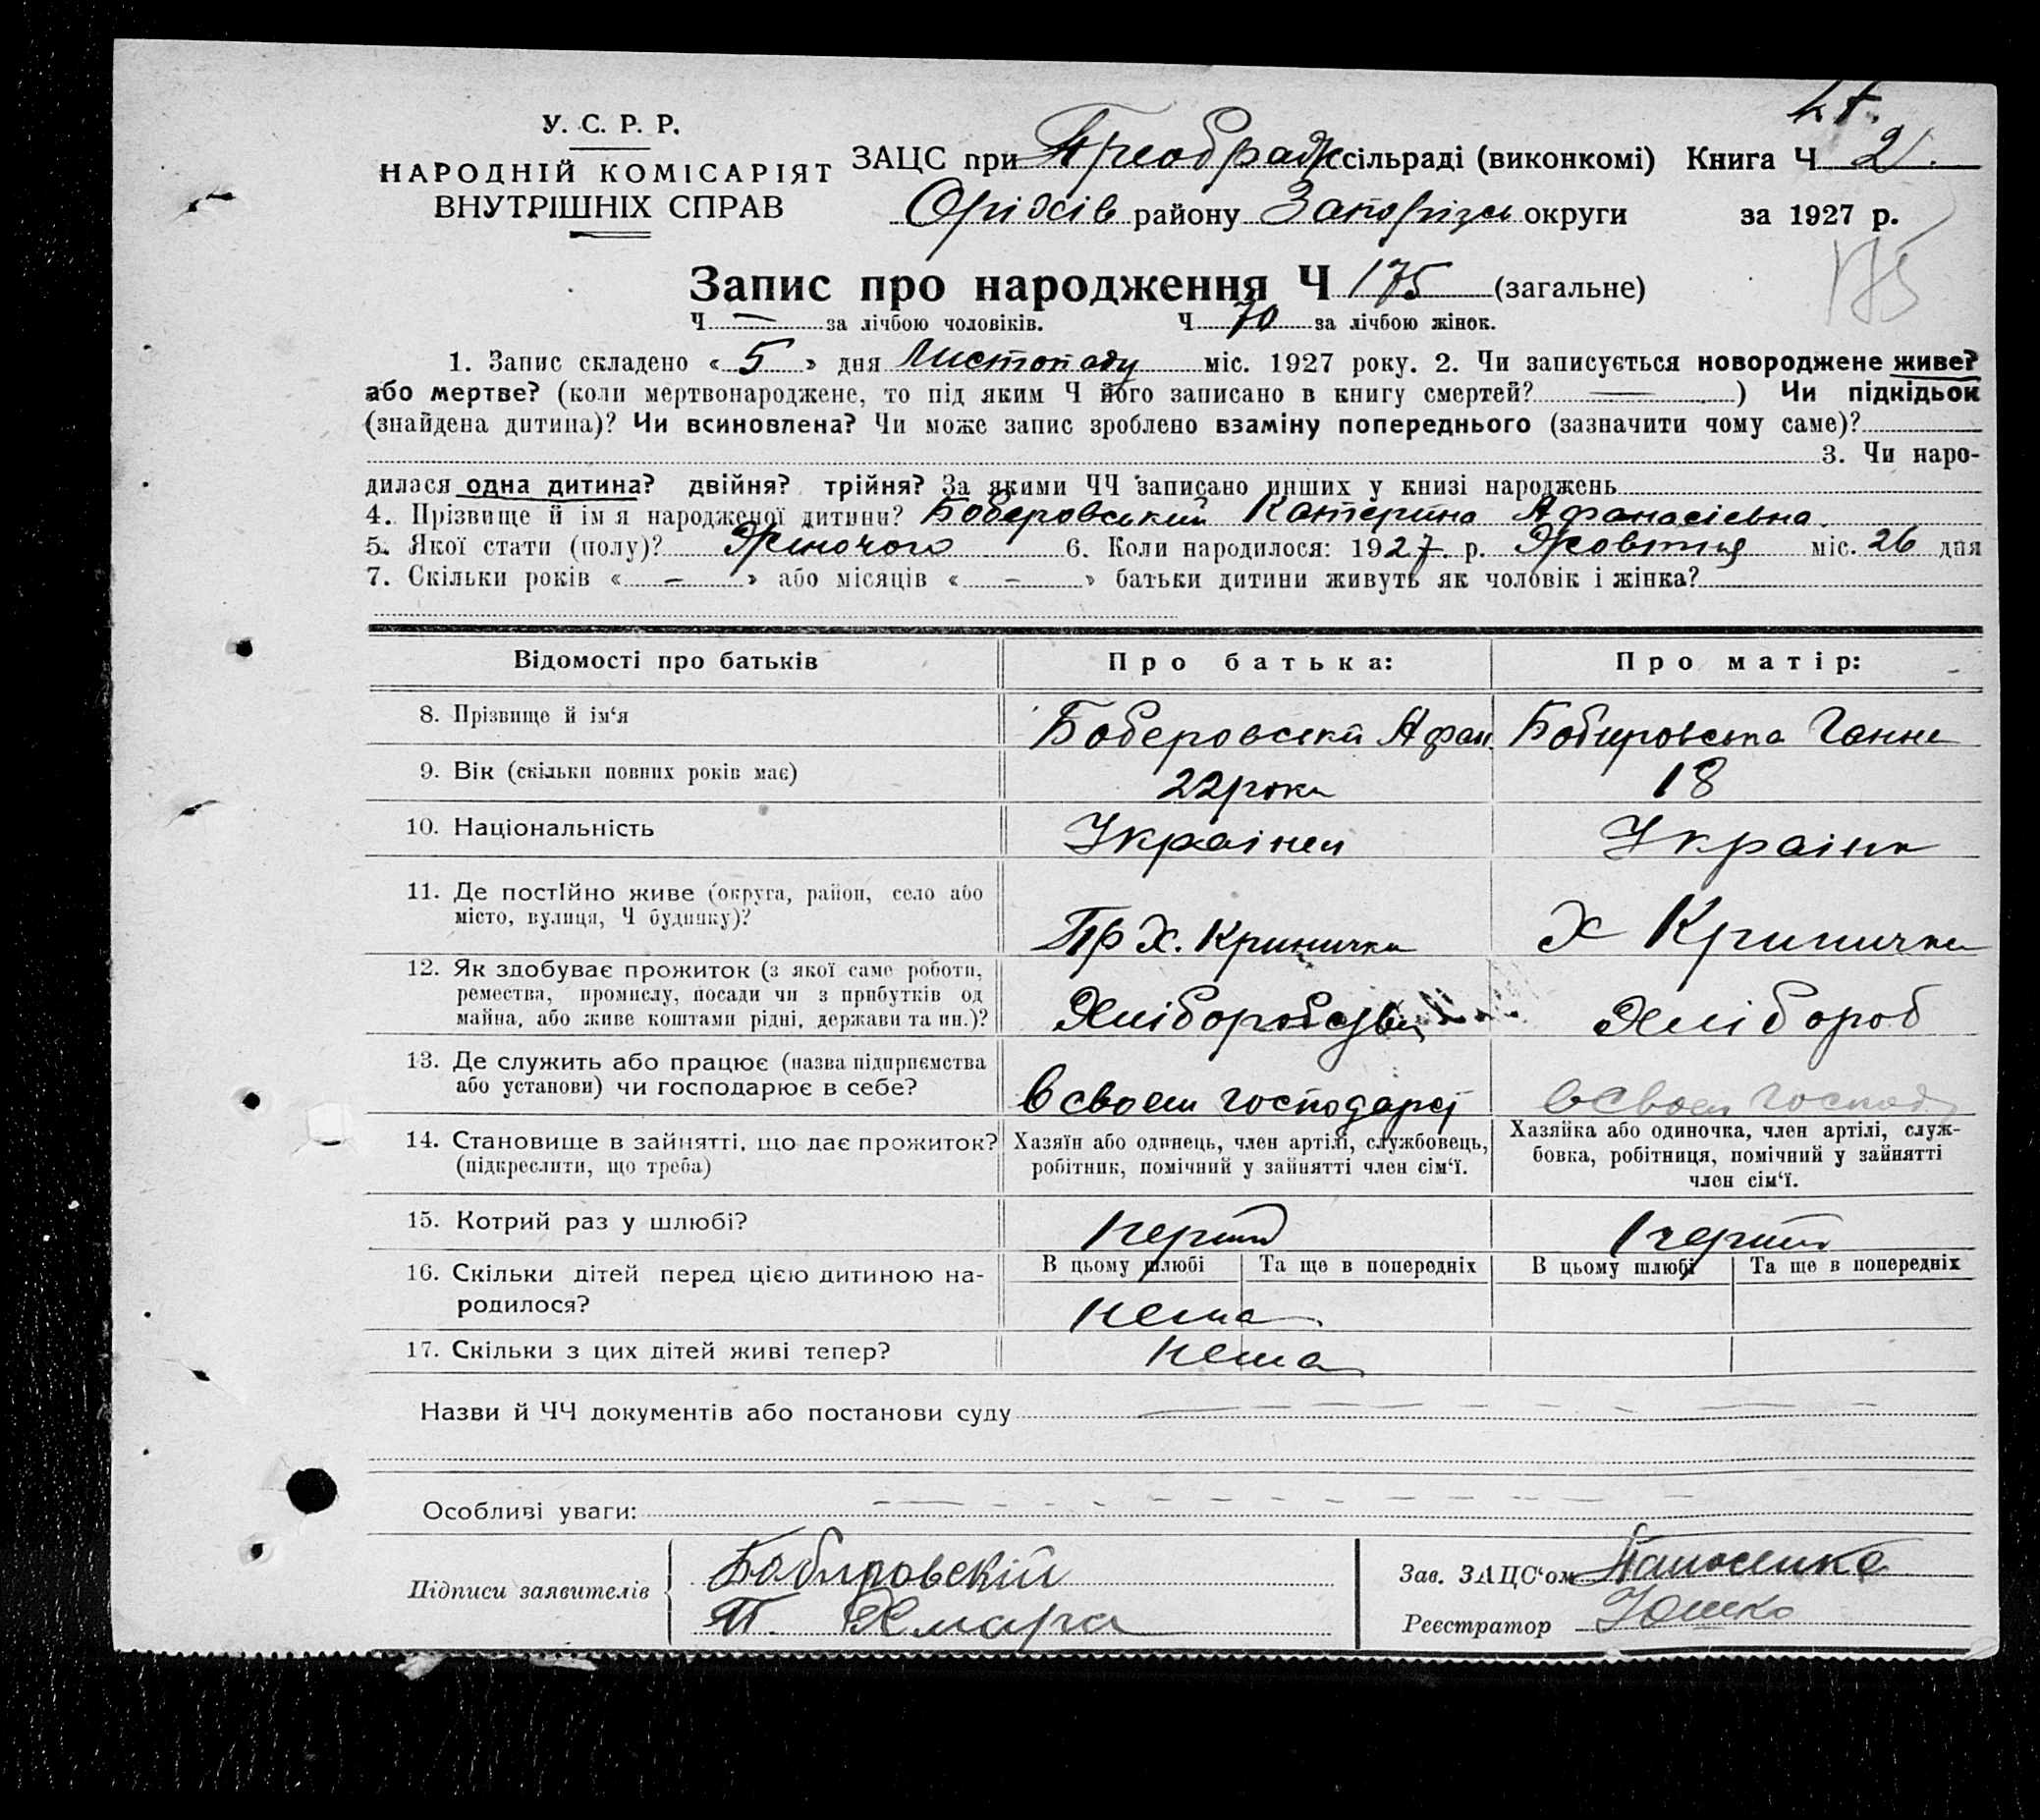 У. С. Р. Р.
НАРОДНІЙ КОМІСАРІЯТ
ВНУТРІШНІХ СПРАВ
ЗАЦС при Преображ сільраді (виконкомі) Книга Ч 2
Оріхів району Запорізь округи за 1927 р.
175
Запис про народження Ч 175 (загальне)
Ч — за лічбою чоловіків. Ч 70 за лічбою жінок.
1. Запис складено « 5 » дня Листопаду міс. 1927 року. 2. Чи записується новороджене живе?
або мертве? (коли мертвонароджене, то під яким Ч його записано в книгу смертей? — ) Чи підкідьок
(знайдена дитина)? Чи всиновлена? Чи може запис зроблено взаміну попереднього (зазначити чому саме)?
3. Чи наро-
дилася одна дитина? двійня? трійня? За якими ЧЧ записано инших у книзі народжень
4. Прізвище й імя народженої дитини? Боберовський Катерина Афанасієвна.
5. Якої стати (полу)? Жіночого 6. Коли народилося: 1927 р. Жовтня міс. 26 дня
7. Скільки років « – » або місяців « – » батьки дитини живуть як чоловік і жінка?
Відомості про батьків Про батька: Про матір:
8. Прізвище й ім‘я Боберовскй Афан Бобировська Ганна
9. Вік (скільки повних років має) 22 роки 18
10. Національність Українец Україн
11. Де постійно живе (округа, район, село або
місто, вулиця, Ч будинку)? Пр Х. Кринички Х Кринички
12. Як здобуває прожиток (з якої саме роботи,
ремества, промислу, посади чи з прибутків од
майна, або живе коштами рідні, держави та ин.)? Хлібороб
13. Де служить або працює (назва підприємства
або установи) чи господарює в себе? В своем господарс в своем господ
14. Становище в зайнятті, що дає прожиток?
(підкреслити, що треба)
Хазяїн або одинець, член артілі, службовець,
робітник, помічний у зайнятті член сім‘ї.
Хазяйка або одиночка, член артілі, служ-
бовка, робітниця, помічний у зайнятті
член сім‘ї.
15. Котрий раз у шлюбі? перший перший
16. Скільки дітей перед цією дитиною на-
родилося?
В цьому шлюбі Та ще в попередніх В цьому шлюбі Та ще в попередніх
нема
17. Скільки з цих дітей живі тепер? нема
Назви й ЧЧ документів або постанови суду
Особливі уваги:
Підписи заявителів Бобировскій
П. Хмара
Зав. ЗАЦС‘ом
Реєстратор Юшко